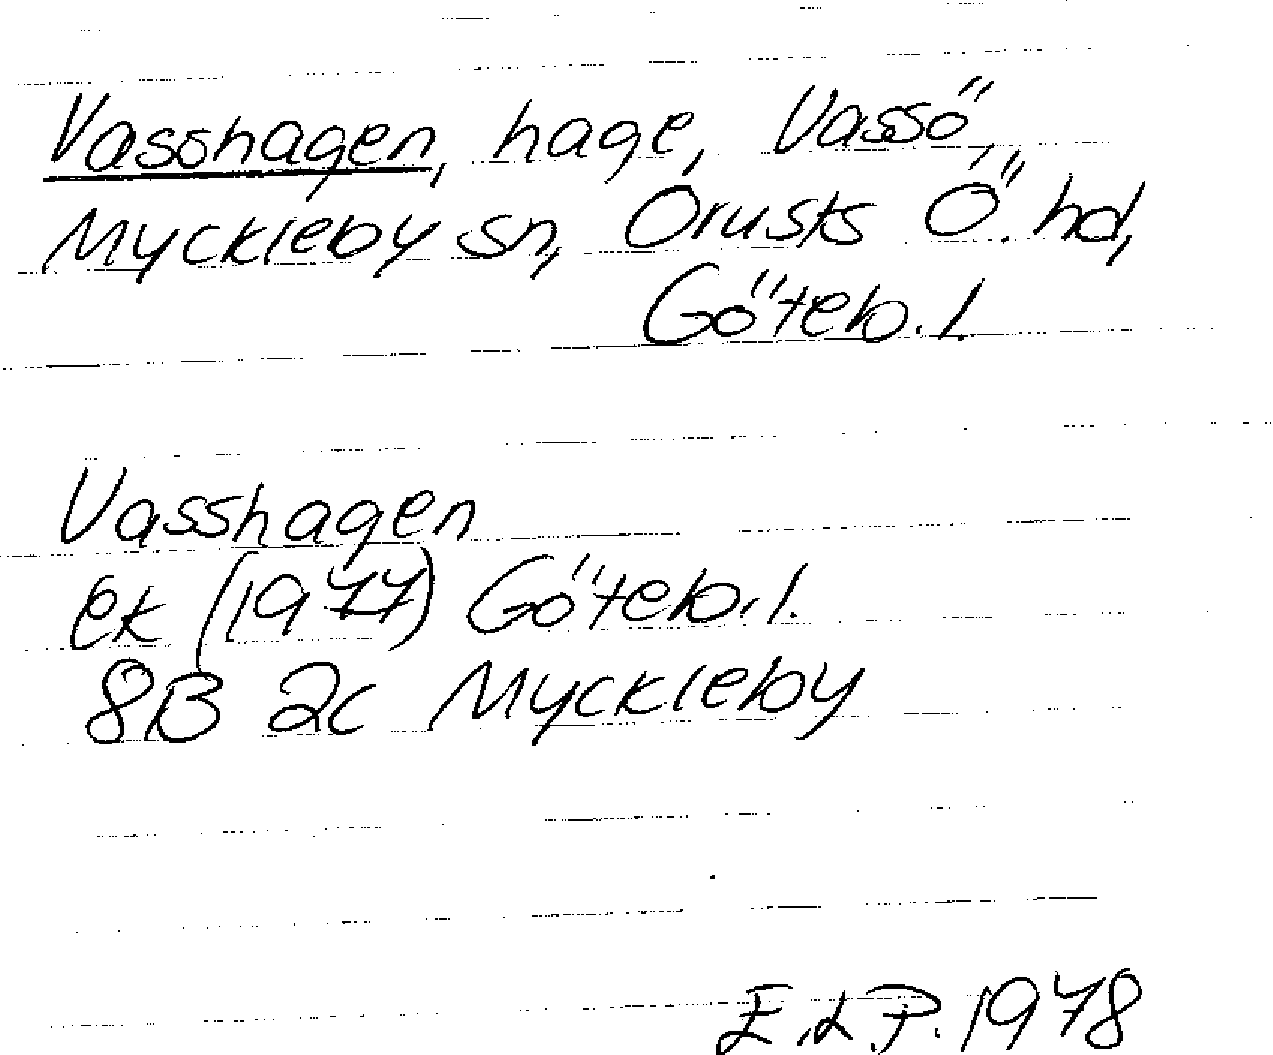 Vasshagen, hage, Vassö,
Myckleby sn, Orusts Ö. hd,
Göteb. l.
Vasshagen
ek (1977) Göteb. l.
8B 2c Myckleby
E.L.P. 1978